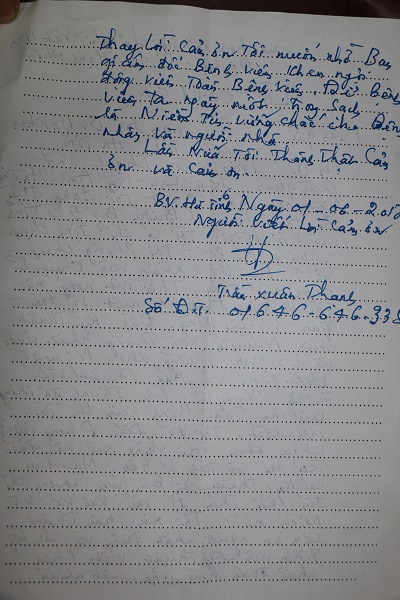 Thay Lời Cảm ơn Tôi muốn nhờ Ban
giám đốc Bệnh viện khen ngợi
động viên Toàn Bệnh viện. Để Bệnh
viện Ta ngày một Trong Sạch
là Niềm Tin vững chắc cho Bệnh
nhân và người nhà.
Lần Nữa Tôi Thành Thật Cảm
ơn và Cảm ơn.
BV. Hà Tĩnh Ngày 01-06-20
Người viết Lời Cảm ơn
Trần Xuân Thanh
Số Đ.T. 01646.646.338